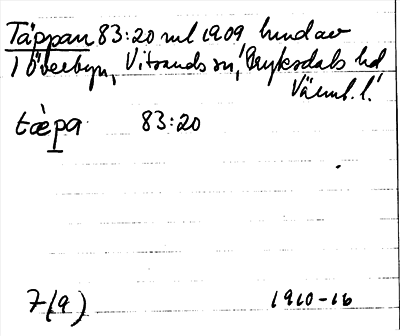 Täppan 83:20 rul 1909 hmd av
1 Överbyn, Vitsands sn, Fryksdals hd
Värml. l.
tæ̀pa 83:20
7(9) 1910-16